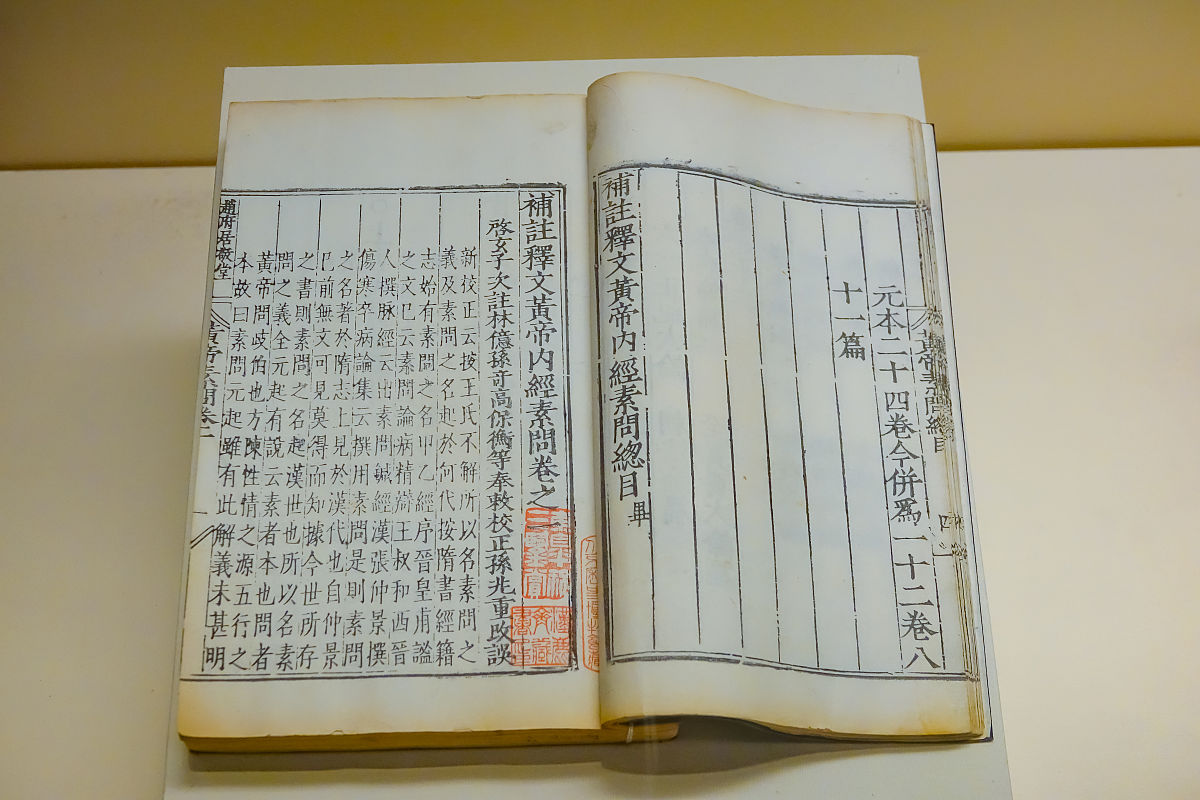 黃帝素問總目
四
元本二十四卷今併爲一十二卷八
十一篇
補註釋文黃帝内經素問總目畢
補註釋文黃帝内經素問卷之一
啓玄子次註林億孫奇高保衡等奉敕校正孫兆重改誤
新校正云按王氏不解所以名素問之
義及素問之名起於何代按隋書經籍
志始有素問之名甲乙經序晉皇甫謐
之文已云素問論病精辯王叔和西晉
人撰脉經云出素問鍼經漢張仲景撰
傷寒卒病論集云撰用素問是則素問
之名著於隋志上見於漢代也自仲景
已前無文可見莫得而知據今世所存
之書則素問之名起漢世也所以名素
問之義全元起有說云素者本也問者
黃帝問歧伯也方陳性情之源五行之
本故曰素問元起雖有此解義未甚明
趙府居敬堂
黃帝素問卷一